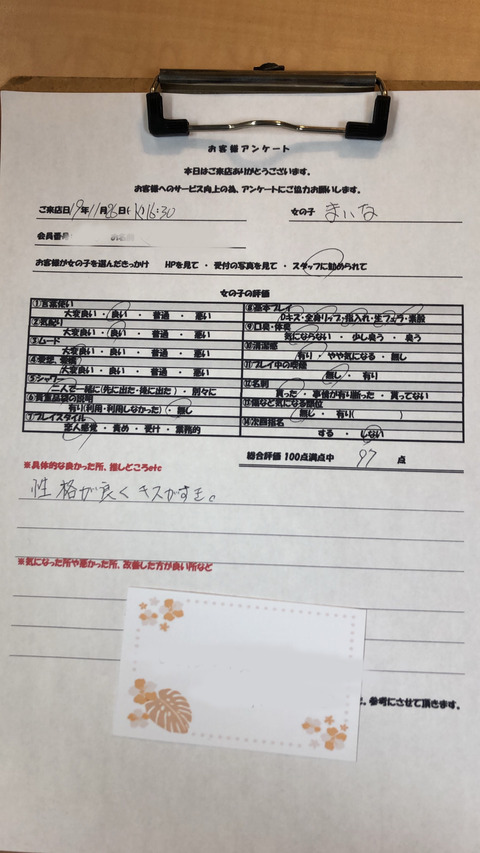 お客様アンケート
本日はご来店ありがとうございます。
お客様へのサービス向上の為、アンケートにご協力お願いします。
ご来店日 19年11月26日( ) 16:30 女の子 まいな
会員番号
お客様が女の子を選んだきっかけ HPを見て ・ 受付の写真を見て ・ スタッフに勧められて
女の子の評価
①言葉使い
大変良い ・ 良い ・ 普通 ・ 悪い
②気配り
大変良い ・ 良い ・ 普通 ・ 悪い
③ムード
大変良い ・ 良い ・ 普通 ・ 悪い
大変良い ・ 良い ・ 普通 ・ 悪い
⑤シャワー
二人で一緒に(先に出た・後に出た) ・ 別々に
⑥貴重品袋の説明
有り(利用・利用しなかった) ・ 無し
⑦プレイスタイル
恋人感覚 ・ 責め ・ 受け ・ 業務的
⑧基本プレイ
Dキス・全身リップ・指入れ・生フェラ・素股
⑨口臭・体臭
気にならない ・ 少し臭う ・ 臭う
⑩清潔感
有り ・ やや気になる ・ 無し
⑪プレイ中の喫煙
無し ・ 有り
⑫名刺
貰った ・ 事情が有り断った ・ 貰ってない
⑬傷など気になる部位
無し ・ 有り( )
⑭次回指名
する ・ しない
総合評価 100点満点中 97 点
※具体的な良かった所、推しどころetc
性格が良くキスがすき。
※気になった所や悪かった所、改善した方が良い所など
参考にさせて頂きます。